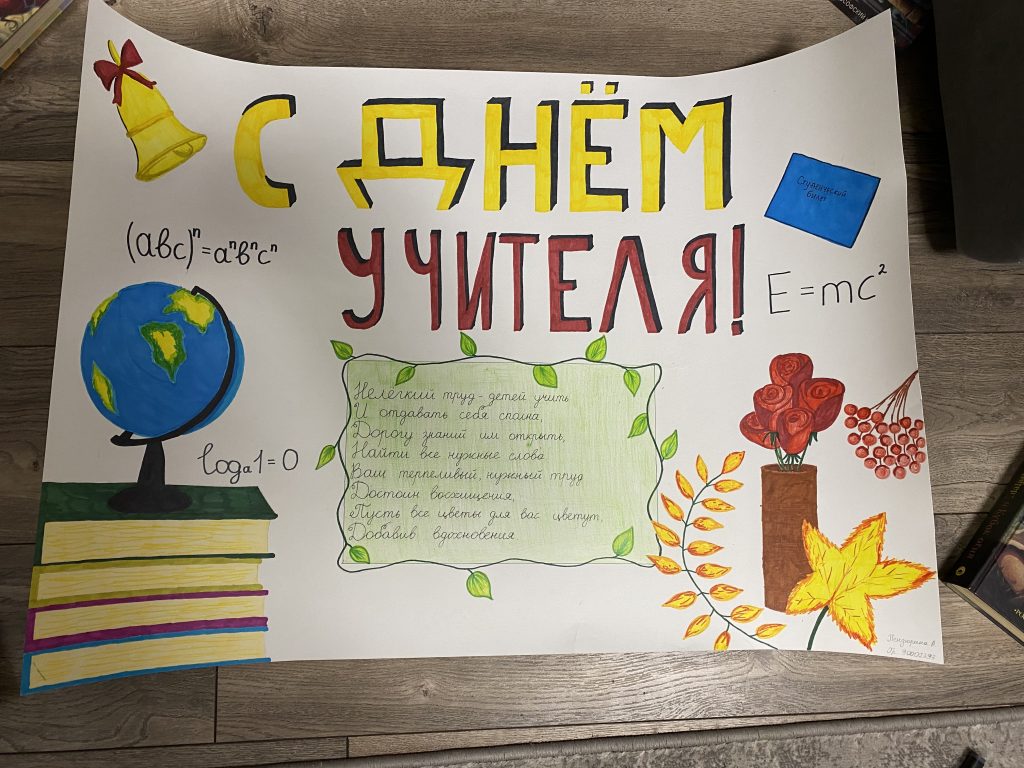 С ДНЁМ
УЧИТЕЛЯ!
Студенческий
билет
(abc)ⁿ=aⁿbⁿcⁿ
E=mc²
logₐ1=0
Нелёгкий труд - детей учить
И отдавать себя сполна,
Дорогу знаний им открыть,
Найти все нужные слова.
Ваш терпеливый, нужный труд
Достоин восхищения,
Пусть все цветы для вас цветут,
Добавив вдохновения